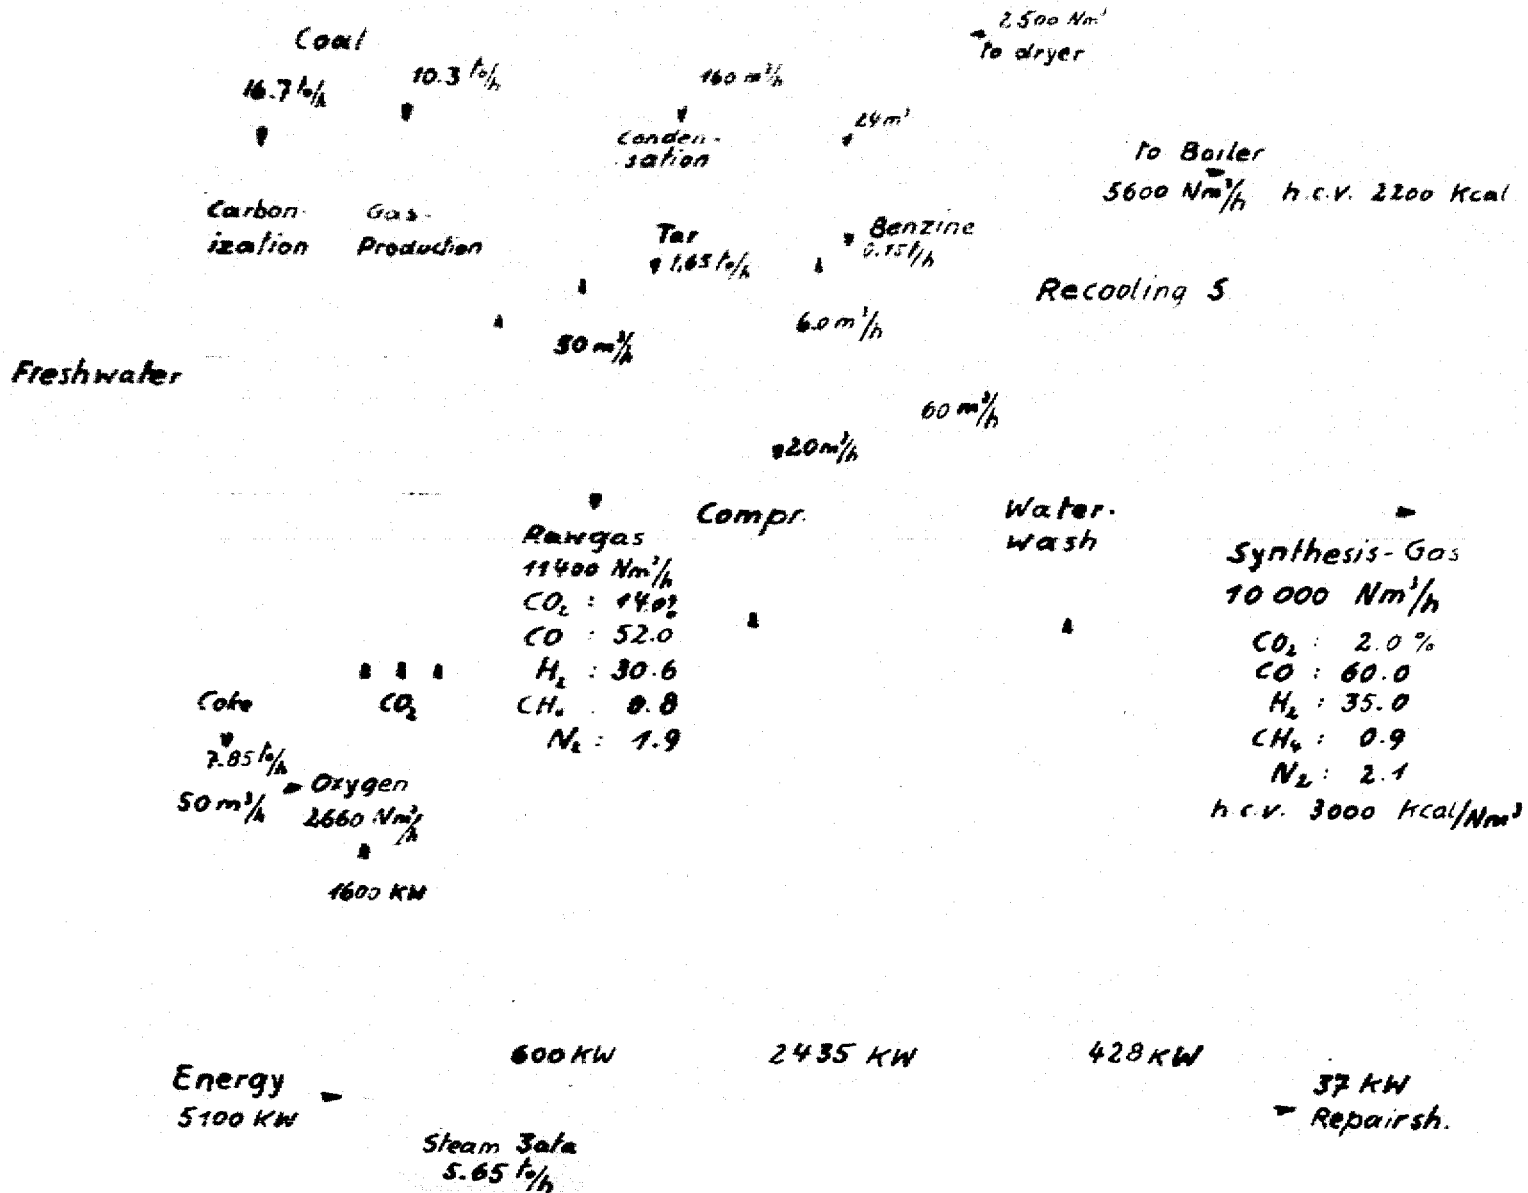 2500 Nm³
to dryer
Coal
16.7 to/h
10.3 to/h
160 m³/h
24 m³
Conden-
sation
to Boiler
5600 Nm³/h h.c.v. 2200 Kcal
Carbon-
ization
Gas-
Production
Tar
1.65 to/h
Benzine
0.75 t/h
Recooling S
6.0 m³/h
50 m³/h
Freshwater
60 m³/h
20 m³/h
Compr.
Water-
wash
Rawgas
11400 Nm³/h
CO₂ : 14.0%
CO : 52.0
H₂ : 30.6
CH₄ 0.8
N₂ : 1.9
Synthesis-Gas
10 000 Nm³/h
CO₂ : 2.0 %
CO : 60.0
H₂ : 35.0
CH₄ : 0.9
N₂ : 2.1
h.c.v. 3000 Kcal/Nm³
Coke
7.85 to/h
CO₂
50 m³/h
Oxygen
2660 Nm³/h
1600 KW
600 KW
2435 KW
428 KW
Energy
5100 KW
37 KW
Repairsh.
Steam 3ata
5.65 to/h